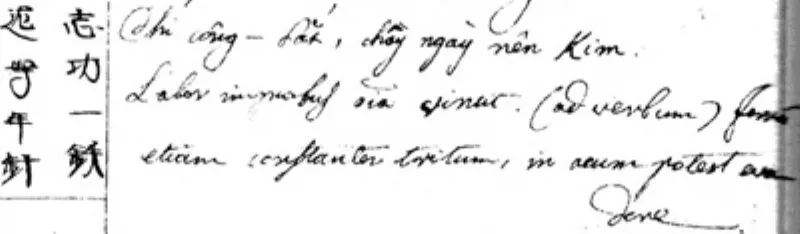 志功一
年針
Chí công - sắt, chầy ngày nên Kim.
Labor improbus oīa vincit. (ad verbum) ferrū
etiam constanter tritum, in acum potest eva
dere